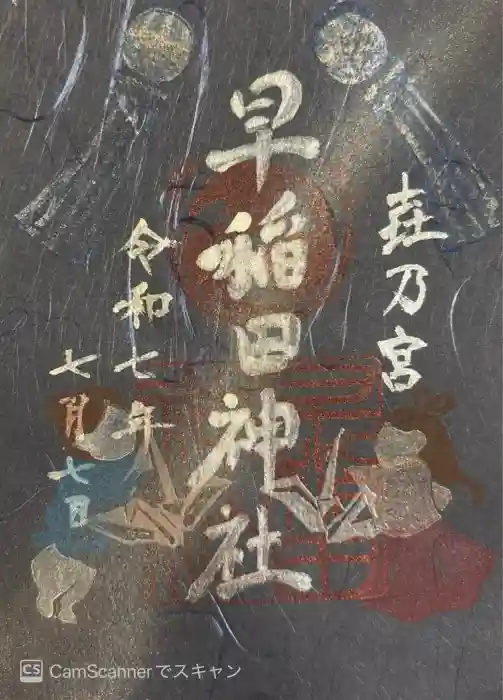 𡉕乃宮
早稲田神社
令和七年
七月七日
CS CamScannerでスキャン